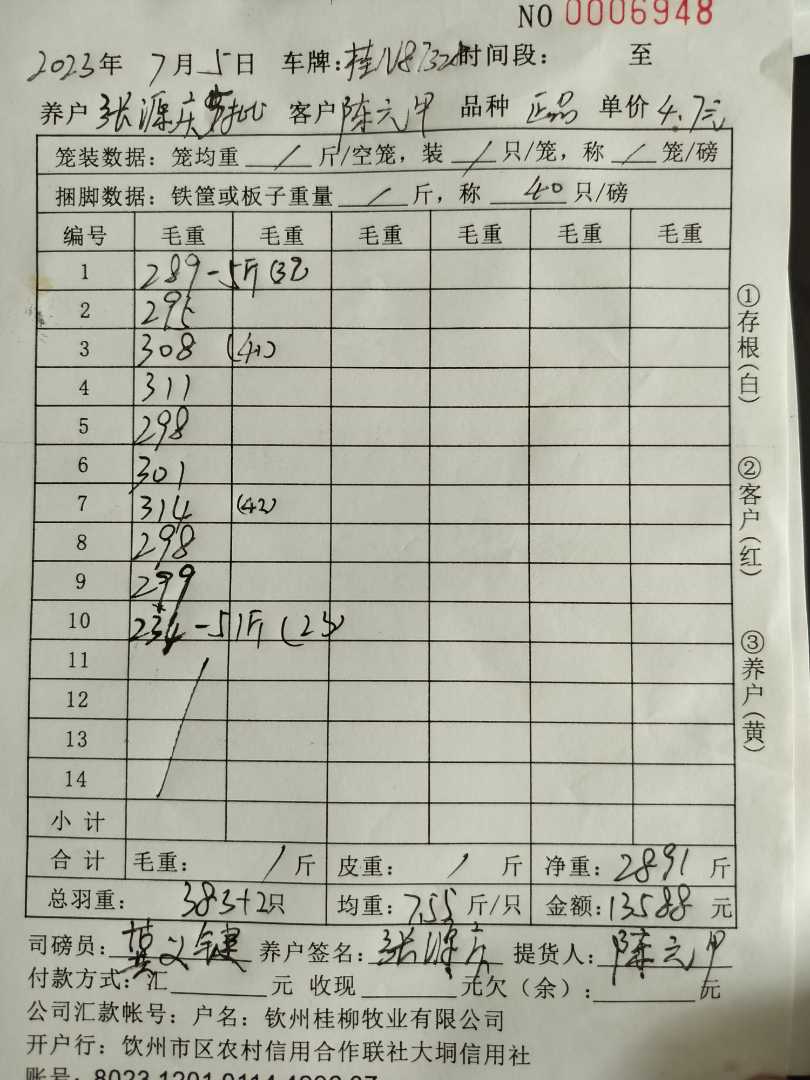 NO 0006948
2023年 7月5日 车牌: 时间段: 至
养户 张源庆 客户 陈元甲 品种 正品 单价 4.7元
笼装数据: 笼均重 / 斤/空笼, 装 / 只/笼, 称 / 笼/磅
捆脚数据: 铁筐或板子重量 / 斤, 称 40 只/磅
编号 毛重 毛重 毛重 毛重 毛重 毛重
1 289-5斤(38)
2 295
3 308 (41)
4 311
5 298
6 301
7 314 (42)
8 298
9 299
10 234-51斤 (25)
11
12
13
14
小计
合计 毛重: / 斤 皮重: / 斤 净重: 2891 斤
总羽重: 383+2只 均重: 7.55 斤/只 金额: 13588 元
①存根(白)
②客户(红)
③养户(黄)
司磅员: 养户签名: 张源庆 提货人: 陈元甲
付款方式: 汇 元 收现 元欠(余): 元
公司汇款帐号: 户名: 钦州桂柳牧业有限公司
开户行: 钦州市区农村信用合作联社大垌信用社